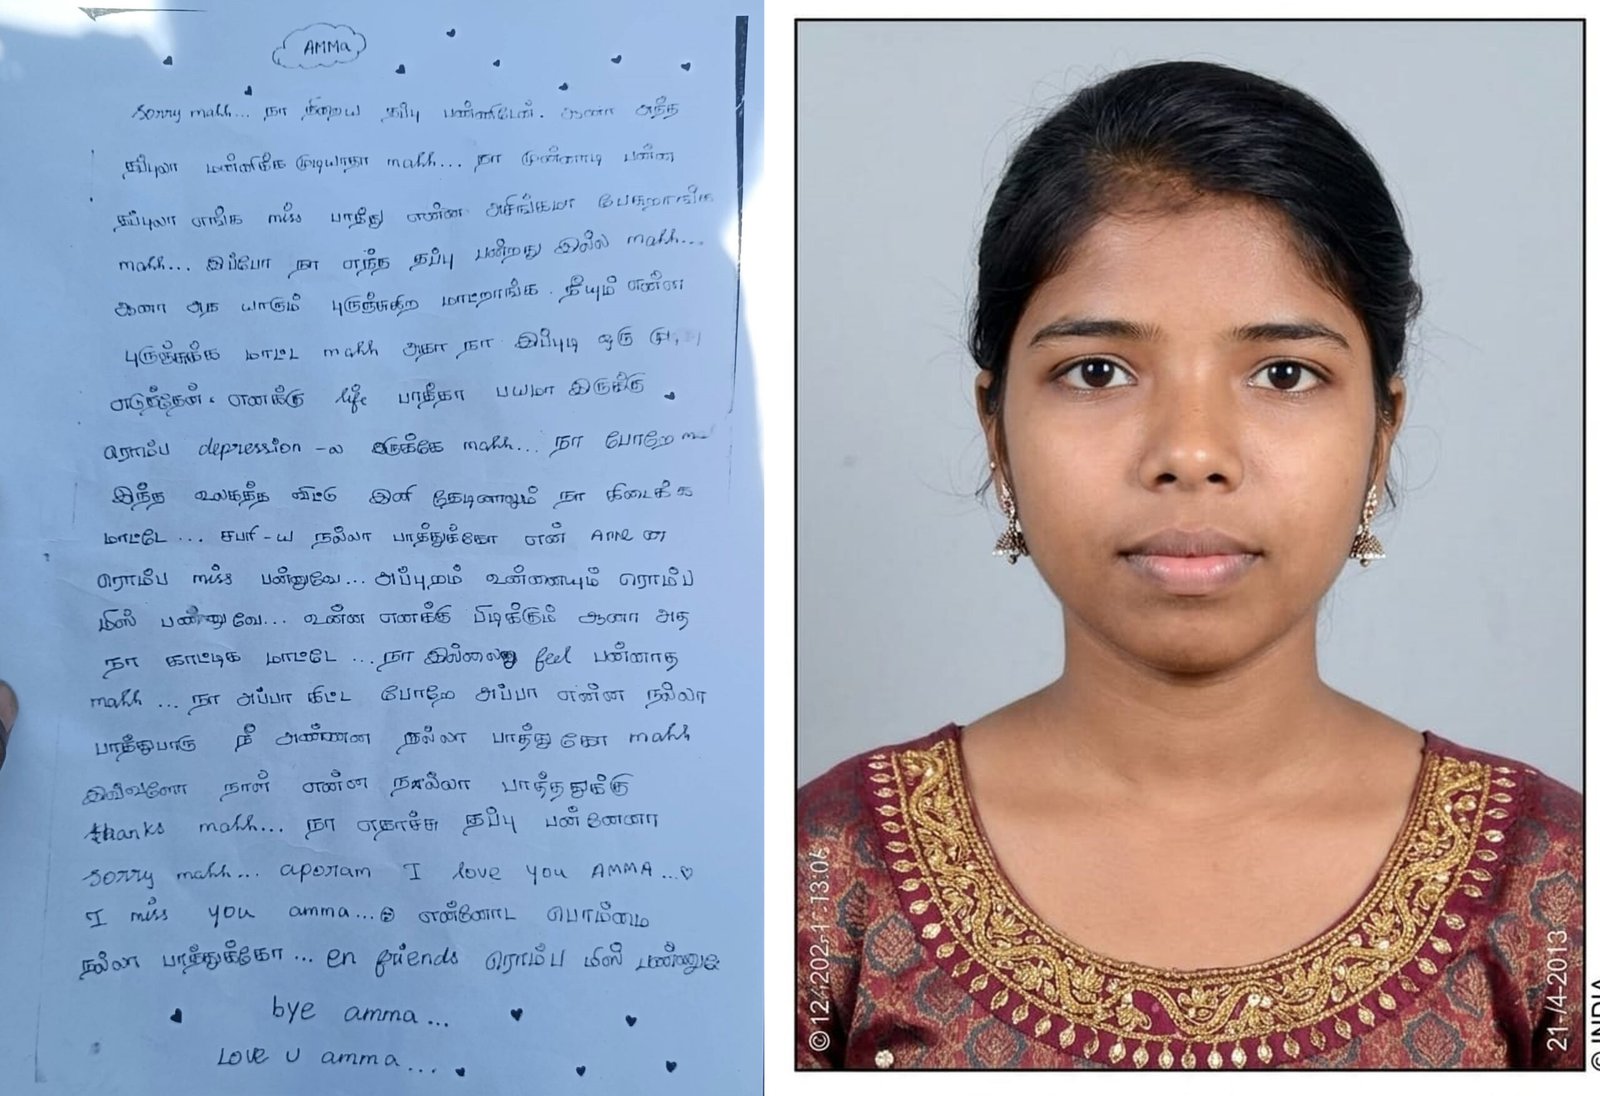 AMMa
Sorry mahh... நா நிறைய தப்பு பண்ணிடேன். ஆனா அந்த
தப்புலா மன்னிக்க முடியாதா mahh... நா முன்னாடி பன்ன
தப்புலா எங்க miss பாத்து என்ன அசிங்கமா பேசுறாங்க
mahh... இப்போ நா எந்த தப்பு பன்றது இல்ல mahh...
ஆனா அத யாரும் புருஞ்சுகிற மாட்றாங்க. நீயும் என்ன
புருஞ்சுக்க மாட்ட mahh அதா நா இப்புடி ஒரு
எடுத்தேன். எனக்கு life பாத்தா பயமா இருக்கு
ரொம்ப depression -ல இருக்கே mahh... நா போறே
இந்த உலகத்த விட்டு இனி தேடினாலும் நா கிடைக்க
மாட்டே... சபரி-ய நல்லா பாத்துக்கோ என்
ரொம்ப miss பன்னுவே... அப்புறம் உன்னையும் ரொம்ப
மிஸ் பண்ணுவே... உன்ன எனக்கு பிடிக்கும் ஆனா அத
நா காட்டிக மாட்டே ...நா இல்லைனு feel பன்னாத
mahh ... நா அப்பா கிட்ட போறே அப்பா என்ன நல்லா
பாத்துபாரு நீ அண்ணன நல்லா பாத்துகோ mahh
இவ்வளோ நாள் என்ன நல்லா பாத்ததுக்கு
thanks mahh... நா ஏதாச்சு தப்பு பன்னேனா
sorry mahh... aporam I love you AMMA...
I miss you amma... என்னோட பொம்மை
நல்லா பாத்துக்கோ... en friends ரொம்ப மிஸ் பண்ணுவே
bye amma...
Love u amma...
21-/4-2013
© INDIA